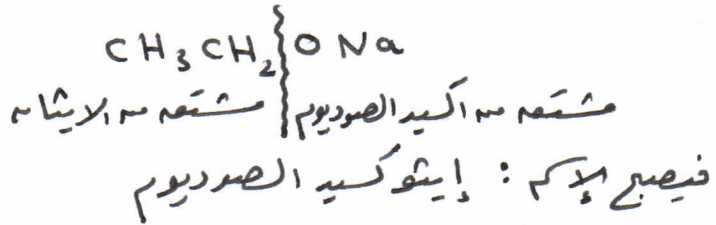 CH₃CH₂ONa
مشتق من الايثان مشتق من اكسيد الصوديوم
فيصبح الإسم : إيثوكسيد الصوديوم